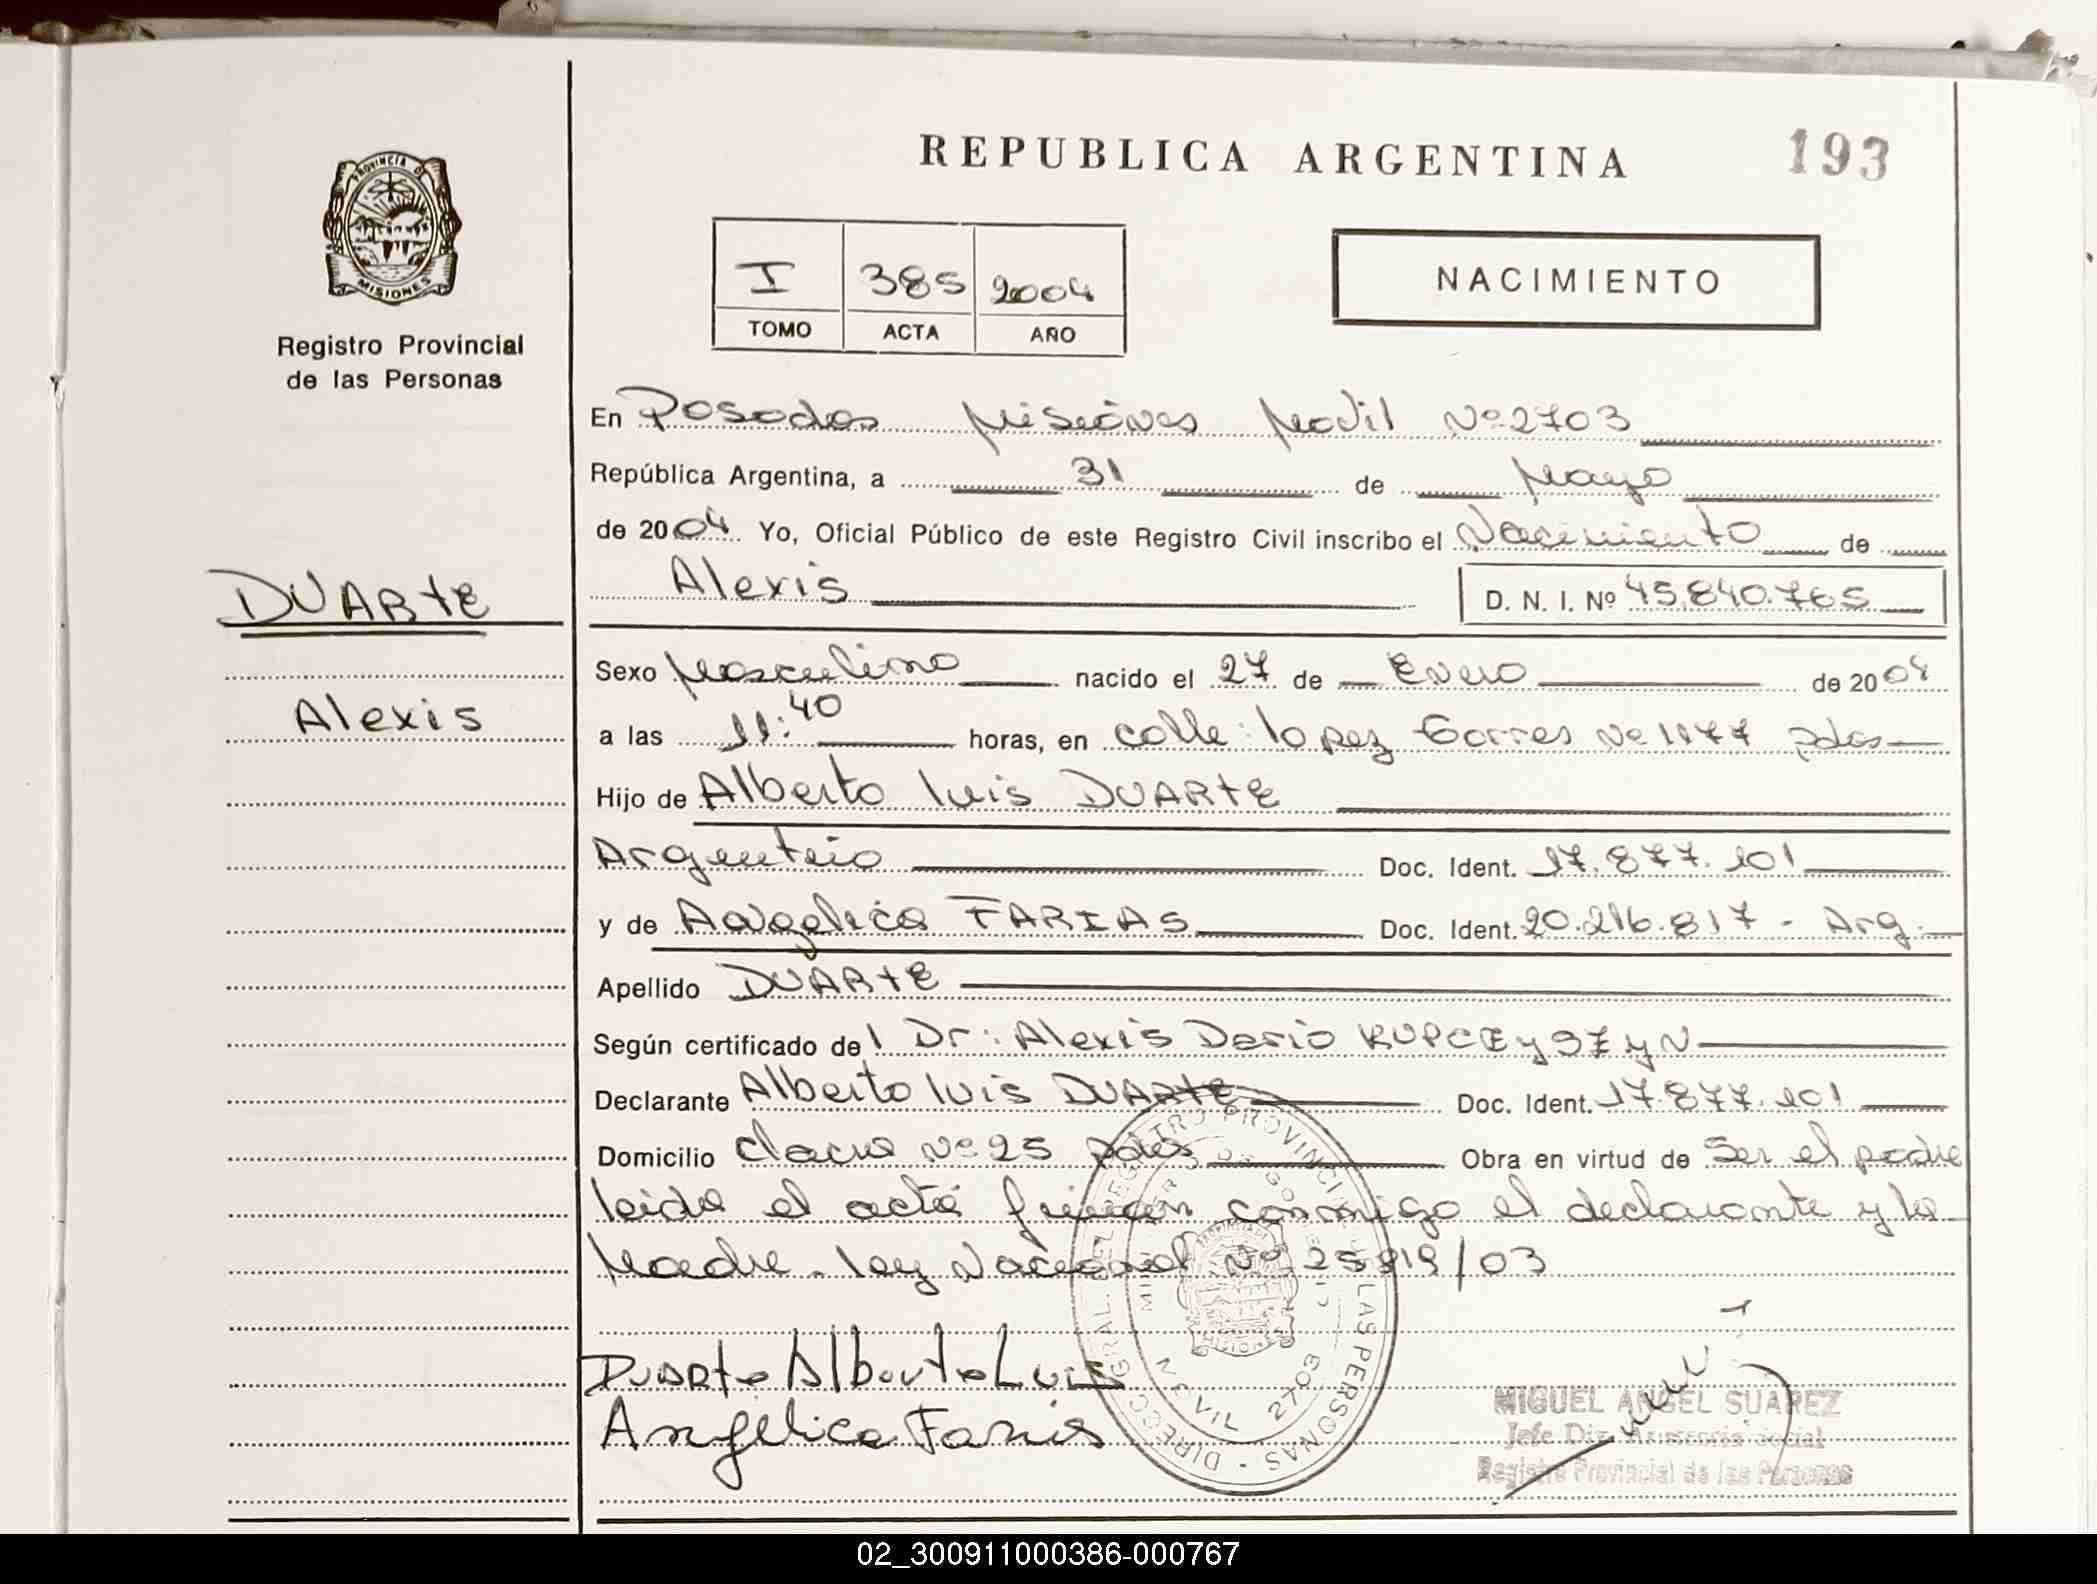 REPUBLICA ARGENTINA
193
PROVINCIA DE
MISIONES
Registro Provincial
de las Personas
I 385 2004
TOMO ACTA AÑO
NACIMIENTO
En Posadas Misiones Movil Nº 2703
República Argentina, a 31 de Mayo
de 2004 Yo, Oficial Público de este Registro Civil inscribo el Nacimiento de
Alexis D. N. I. Nº 45.840.765
DUARTE
Alexis
Sexo Masculino nacido el 27 de Enero de 2004
a las 11:40 horas, en calle: lopez torres Nº 1177 pdas
Hijo de Alberto luis DUARTE
Argentino Doc. Ident. 17.877.101
y de Angelica FARIAS Doc. Ident. 20.216.817 - Arg.
Apellido DUARTE
Según certificado del Dr: Alexis Dario
Declarante Alberto luis DUARTE Doc. Ident. 17.877.101
Domicilio Nº 25 pdas Obra en virtud de Ser el padre
leida el acta firman conmigo el declarante y la
Madre. ley Nacional Nº 25819/03
Duarte Alberto Luis
Angélica Farias
DIRECC. GRAL. DEL REGISTRO PROVINCIAL DE LAS PERSONAS
2703
MIGUEL ANGEL SUAREZ
Jefe Div. Asistencia Social
Registro Provincial de las Personas
02_300911000386-000767